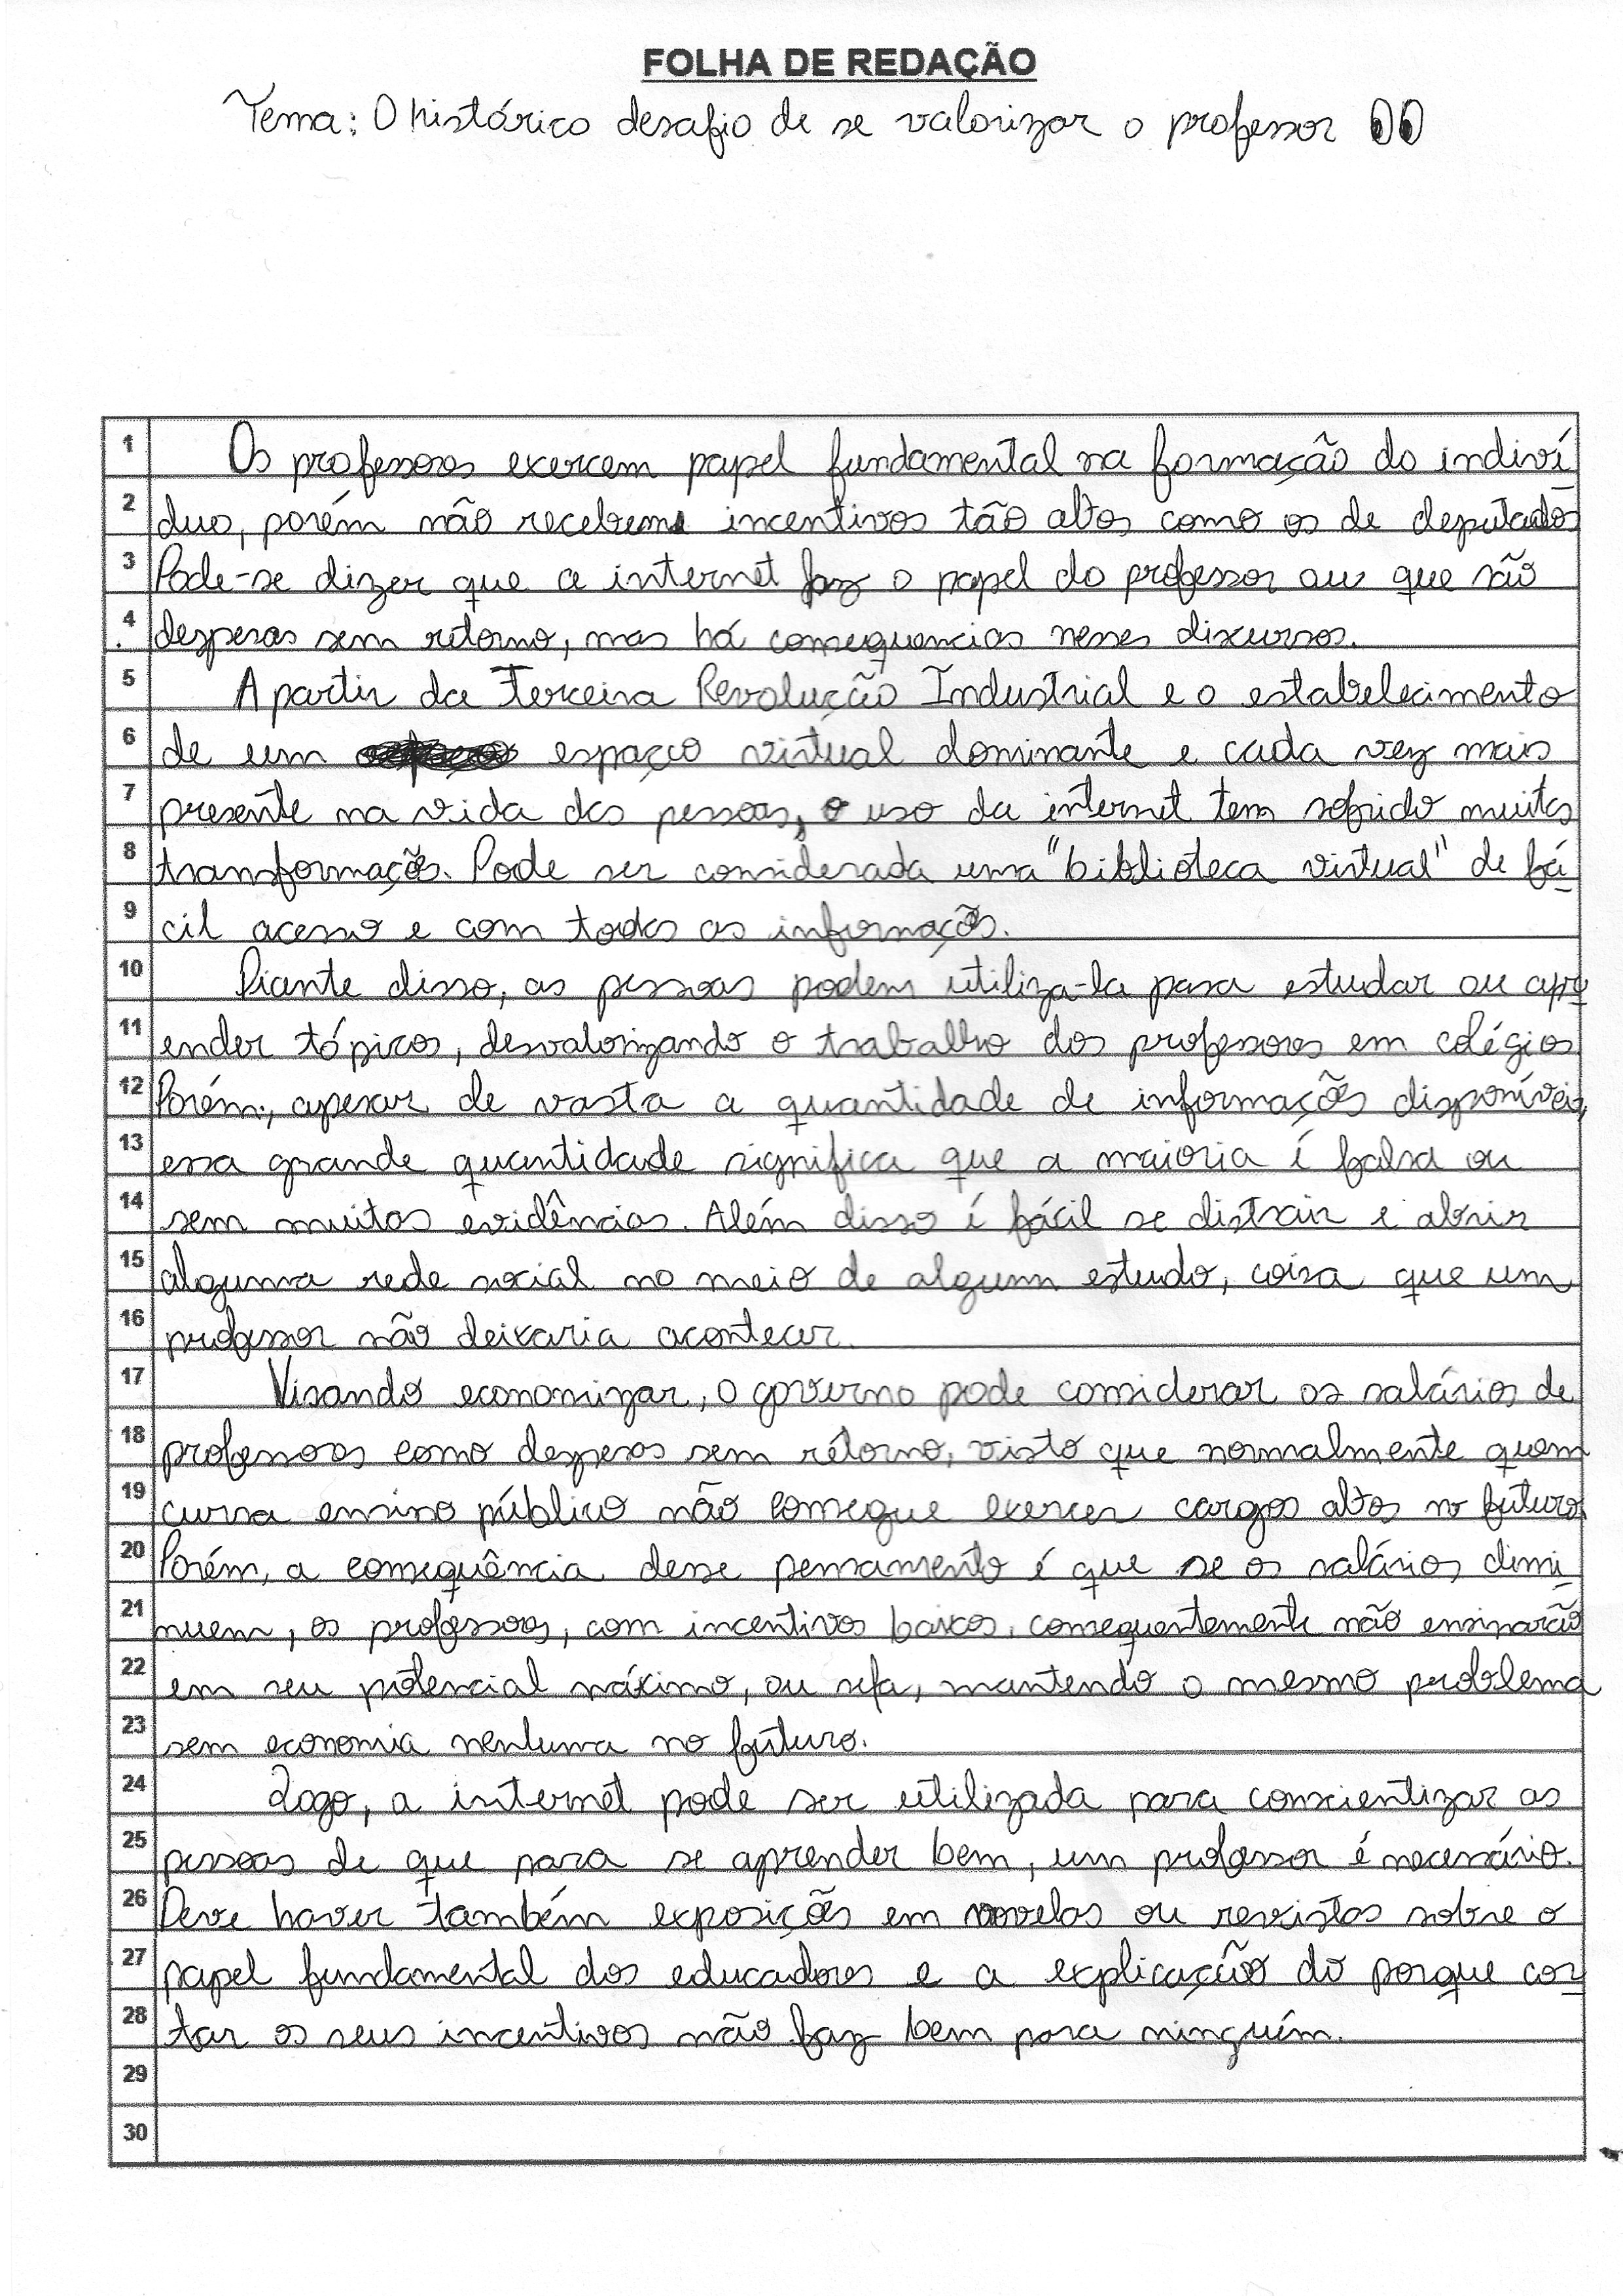 FOLHA DE REDAÇÃO
Tema: O histórico desafio de se valorizar o professor
1 Os professores exercem papel fundamental na formação do indiví
2 duo, porém não recebem incentivos tão altos como os de deputados
3 Pode-se dizer que a internet faz o papel do professor ou que são
4 despesas sem retorno, mas há consequencias nesses discursos.
5 A partir da Terceira Revolução Industrial e o estabelecimento
6 de um espaço virtual dominante e cada vez mais
7 presente na vida das pessoas, o uso da internet tem sofrido muitas
8 transformações. Pode ser considerada uma "biblioteca virtual" de fá-
9 cil acesso e com todas as informações.
10 Diante disso, as pessoas podem utiliza-la para estudar ou apr
11 ender tópicos, desvalorizando o trabalho dos professores em colégios.
12 Porém, apesar de vasta a quantidade de informações disponíveis,
13 essa grande quantidade significa que a maioria é falsa ou
14 sem muitas evidências. Além disso é fácil se distrair e abrir
15 alguma rede social no meio de algum estudo, coisa que um
16 professor não deixaria acontecer.
17 Visando economizar, o governo pode considerar os salários de
18 professores como despesas sem retorno, visto que normalmente quem
19 cursa ensino público não consegue exercer cargos altos no futuro.
20 Porém, a consequência desse pensamento é que se os salários dimi-
21 nuem, os professores, com incentivos baixos, consequentemente não ensinarão
22 em seu potencial máximo, ou seja, mantendo o mesmo problema
23 sem economia nenhuma no futuro.
24 Logo, a internet pode ser utilizada para conscientizar as
25 pessoas de que para se aprender bem, um professor é necessário.
26 Deve haver também exposições em novelas ou revistas sobre o
27 papel fundamental dos educadores e a explicação do porque cor
28 tar os seus incentivos não faz bem para ninguém.
29
30